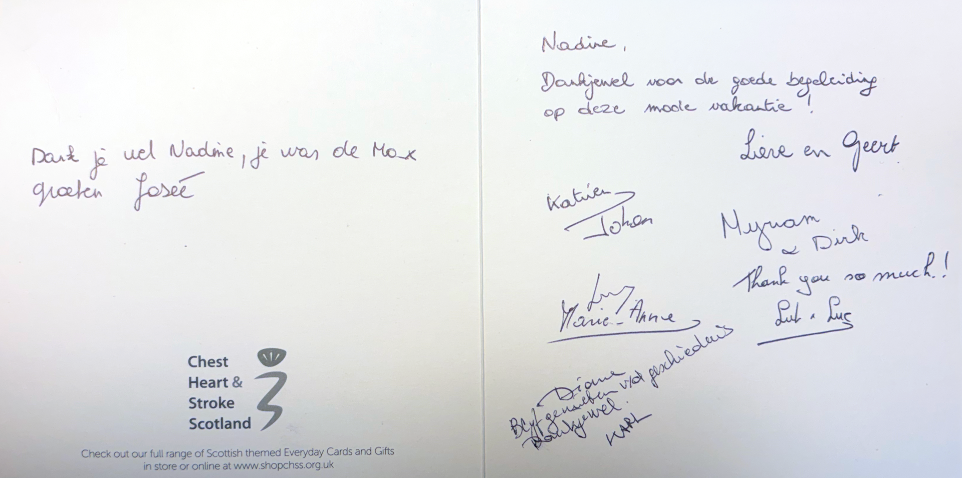 Dank je wel Nadine, je was de Max
groeten Joseé
Chest
Heart &
Stroke
Scotland
Check out our full range of Scottish themed Everyday Cards and Gifts
in store or online at www.shopchss.org.uk
Nadine,
Dankjewel voor de goede begeleiding
op deze mooie vakantie!
Liève en Geert
Katrien
Johan
Myriam
& Dirk
Thank you so much!
Lut & Luc
Luc
Marie-Anne
Diane
Blijf genieten v/d geschiedenis
Dankjewel.
KARL